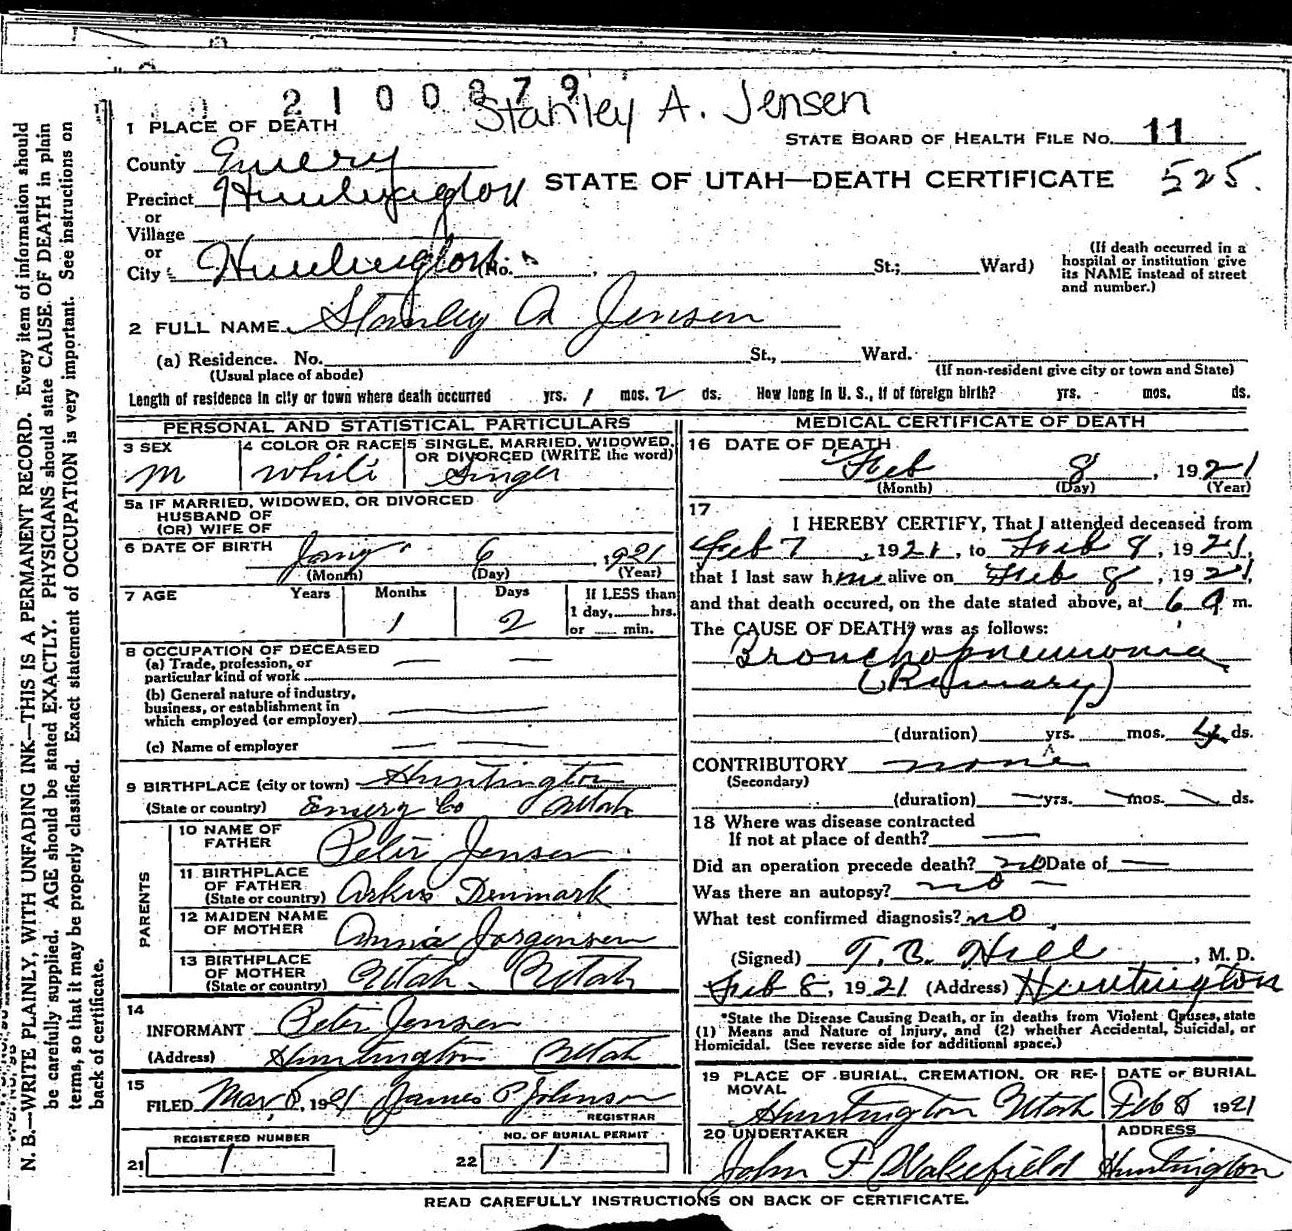 2100879
Stanley A. Jensen
1 PLACE OF DEATH
STATE BOARD OF HEALTH FILE NO. 11
County Emery
STATE OF UTAH—DEATH CERTIFICATE 525.
Precinct Huntington
or
Village
or
City Huntington (No. , St.; Ward)
(If death occurred in a hospital or institution give its NAME instead of street and number.)
2 FULL NAME Stanley A Jensen
(a) Residence. No. St., Ward.
(Usual place of abode) (If non-resident give city or town and State)
Length of residence in city or town where death occurred yrs. 1 mos. 2 ds. How long in U. S., if of foreign birth? yrs. mos. ds.
PERSONAL AND STATISTICAL PARTICULARS
3 SEX
M
4 COLOR OR RACE
White
5 SINGLE, MARRIED, WIDOWED,
OR DIVORCED (WRITE the word)
Single
5a IF MARRIED, WIDOWED, OR DIVORCED
HUSBAND OF
(OR) WIFE OF
6 DATE OF BIRTH Jany 6, 1921
(Month) (Day) (Year)
7 AGE Years Months Days If LESS than
1 2 1 day, hrs.
or min.
8 OCCUPATION OF DECEASED
(a) Trade, profession, or
particular kind of work
(b) General nature of industry,
business, or establishment in
which employed (or employer)
(c) Name of employer
9 BIRTHPLACE (city or town) Huntington
(State or country) Emery Co Utah
PARENTS
10 NAME OF
FATHER Peter Jensen
11 BIRTHPLACE
OF FATHER
(State or country) Denmark
12 MAIDEN NAME
OF MOTHER Annie Jorgensen
13 BIRTHPLACE
OF MOTHER
(State or country) Utah - Utah
14
INFORMANT Peter Jensen
(Address) Huntington Utah
15
FILED Mar, 8, 1921 James P Johnson
REGISTRAR
REGISTERED NUMBER
21 1
NO. OF BURIAL PERMIT
22 1
MEDICAL CERTIFICATE OF DEATH
16 DATE OF DEATH
Feb 8, 1921
(Month) (Day) (Year)
17
I HEREBY CERTIFY, That I attended deceased from
Feb 7, 1921, to Feb 8, 1921,
that I last saw him alive on Feb 8, 1921,
and that death occured, on the date stated above, at 6 A m.
The CAUSE OF DEATH* was as follows:
Bronchopneumonia
(Primary)
(duration) yrs. mos. 4 ds.
CONTRIBUTORY none
(Secondary)
(duration) yrs. mos. ds.
18 Where was disease contracted
If not at place of death?
Did an operation precede death? no Date of
Was there an autopsy? no
What test confirmed diagnosis? no
(Signed) T. C. Hill, M. D.
Feb 8, 1921 (Address) Huntington
*State the Disease Causing Death, or in deaths from Violent Causes, state
(1) Means and Nature of Injury, and (2) whether Accidental, Suicidal, or
Homicidal. (See reverse side for additional space.)
19 PLACE OF BURIAL, CREMATION, OR RE-
MOVAL
Huntington Utah
DATE OF BURIAL
Feb 8 1921
20 UNDERTAKER
John F Wakefield
ADDRESS
Huntington
READ CAREFULLY INSTRUCTIONS ON BACK OF CERTIFICATE.
N. B.—WRITE PLAINLY, WITH UNFADING INK—THIS IS A PERMANENT RECORD. Every item of information should
be carefully supplied. AGE should be stated EXACTLY. PHYSICIANS should state CAUSE OF DEATH in plain
terms, so that it may be properly classified. Exact statement of OCCUPATION is very important. See instructions on
back of certificate.